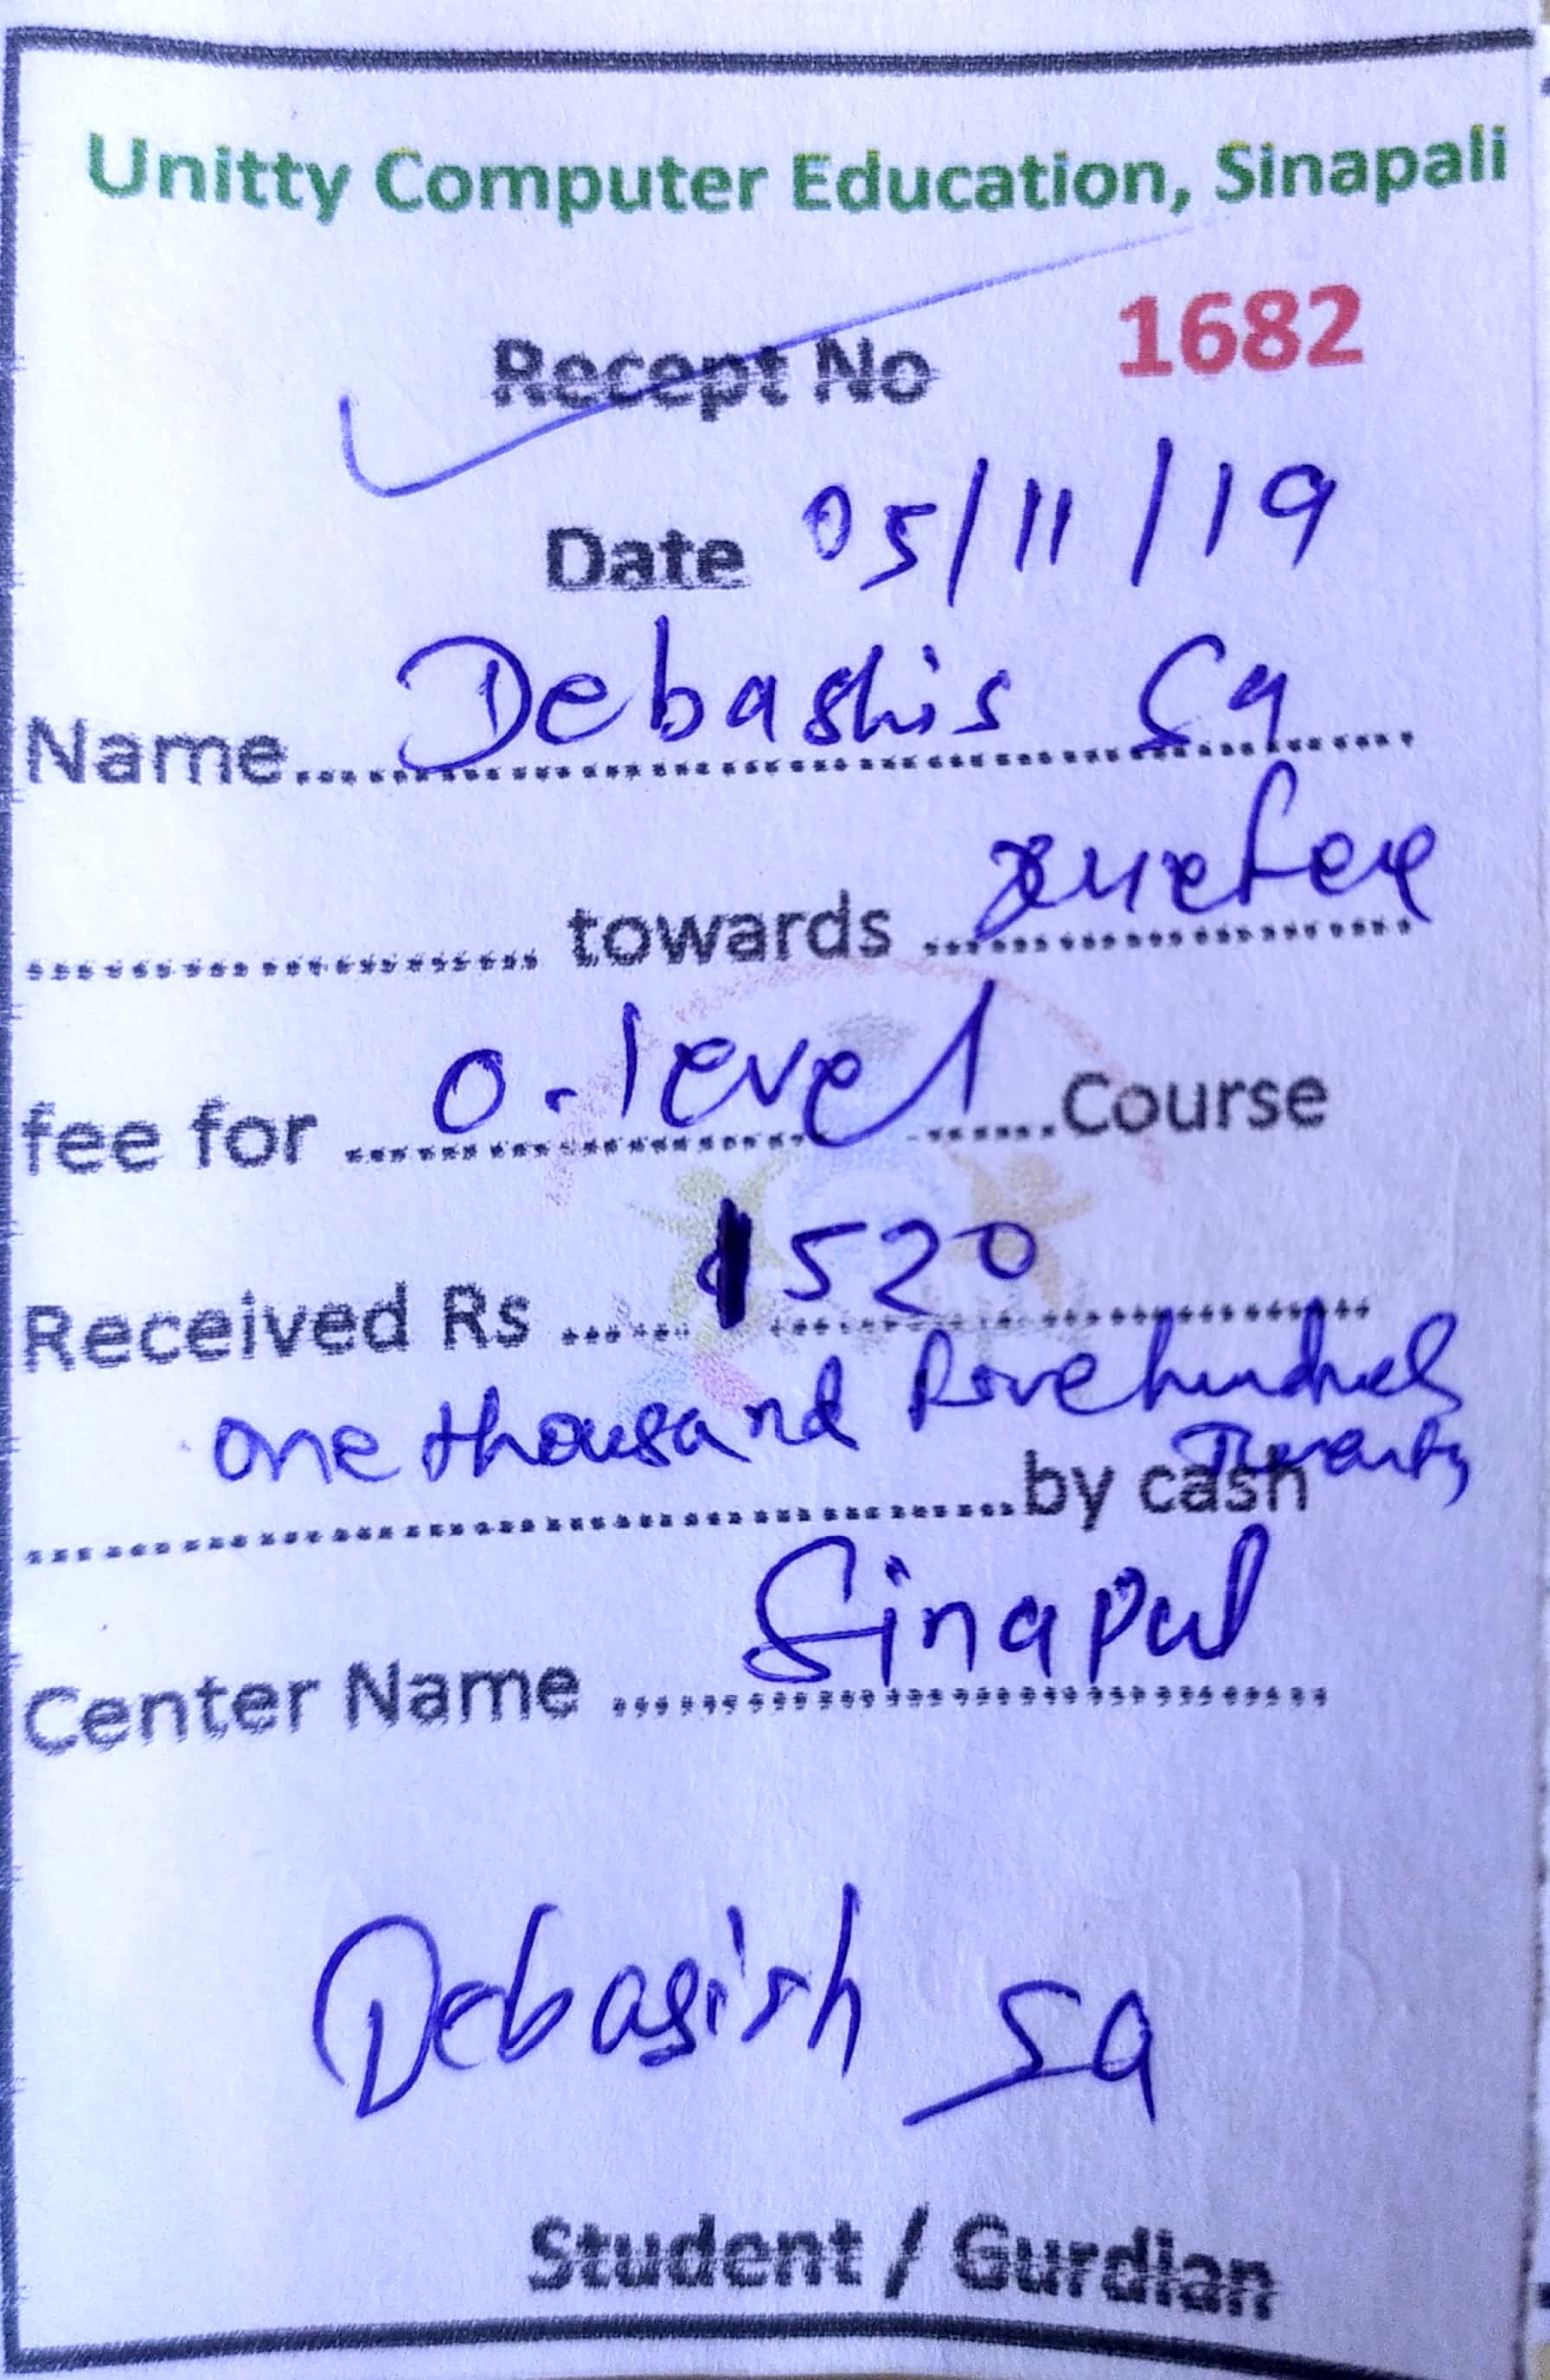 Unitty Computer Education, Sinapali
Recept No 1682
Date 05/11/19
Name.......Debashis Sa.......
.................... towards ....................
fee for .......O-level.......Course
Received Rs ......1520............
one thousand Five hundred
Twenty
....................by cash
Center Name ....................
Debasish Sa
Student / Gurdian